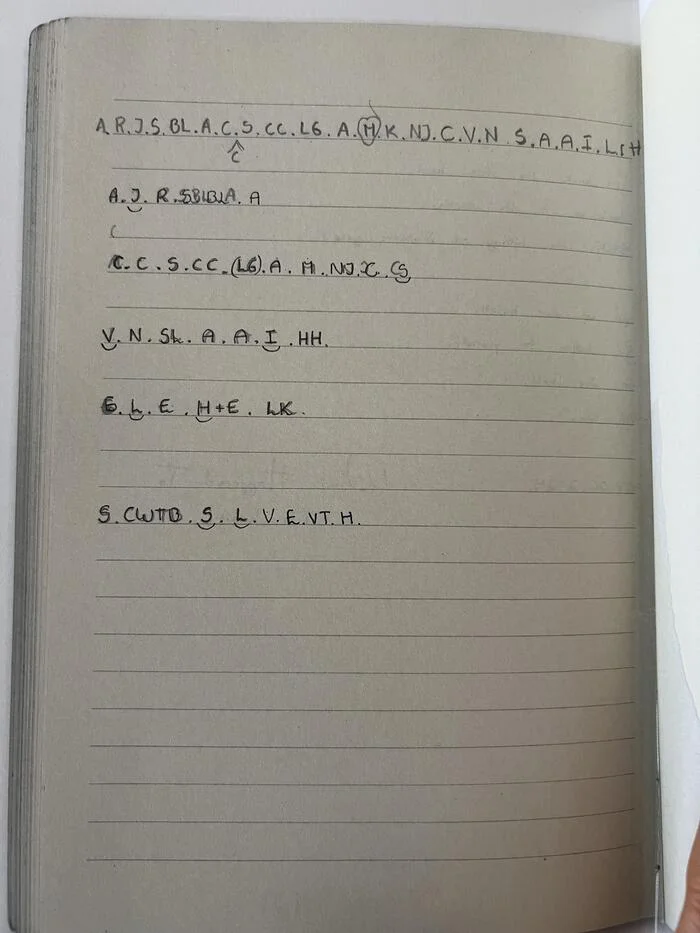 A.R.J.S.BL.A.C.S.CC.LG.A.M.K.NJ.C.V.N.S.A.A.I.L.
C
A.J.R.SBLBLA.A
C.C.S.CC.(LG).A.M.NJ.C.CS
V.N.SL.A.A.I.HH.
G.L.E.H+E.LK.
S.CWTTB.S.L.V.E.VT.H.